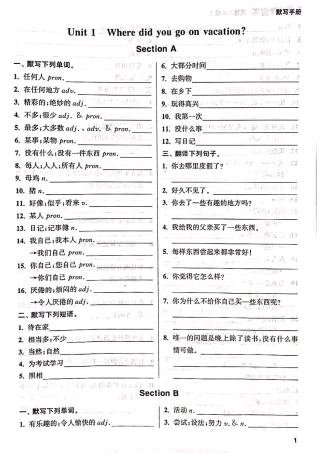 默写手册
Unit 1 Where did you go on vacation?
Section A
一、默写下列单词。
1. 任何人 pron.
2. 在任何地方 adv.
3. 精彩的;绝妙的 adj.
4. 不多;很少 adj. & pron.
5. 最多;大多数 adj., adv. & pron.
6. 某事;某物 pron.
7. 没有什么;没有一件东西 pron.
8. 每人;人人;所有人 pron.
9. 母鸡 n.
10. 猪 n.
11. 好像;似乎;看来 v.
12. 某人 pron.
13. 日记;记事簿 n.
14. 我自己;我本人 pron.
→我们自己 pron.
15. 你自己;您自己 pron.
→你们自己 pron.
16. 厌倦的;烦闷的 adj.
→令人厌倦的 adj.
二、默写下列短语。
1. 待在家
2. 相当多;不少
3. 当然;自然
4. 为考试学习
5. 照相
6. 大部分时间
7. 去购物
8. 在乡下
9. 玩得高兴
10. 第一次
11. 没什么事
12. 写日记
三、翻译下列句子。
1. 你去哪里度假了?
2. 好久不见了。
3. 你去了一些有趣的地方吗?
4. 我给我的父亲买了一些东西。
5. 每样东西尝起来都非常好!
6. 你觉得它怎么样?
7. 你为什么不给你自己买一些东西呢?
8. 唯一的问题是晚上除了读书,没有什么事情可做。
Section B
一、默写下列单词。
1. 有乐趣的;令人愉快的 adj.
2. 活动 n.
3. 尝试;设法;努力 v. & n.
1